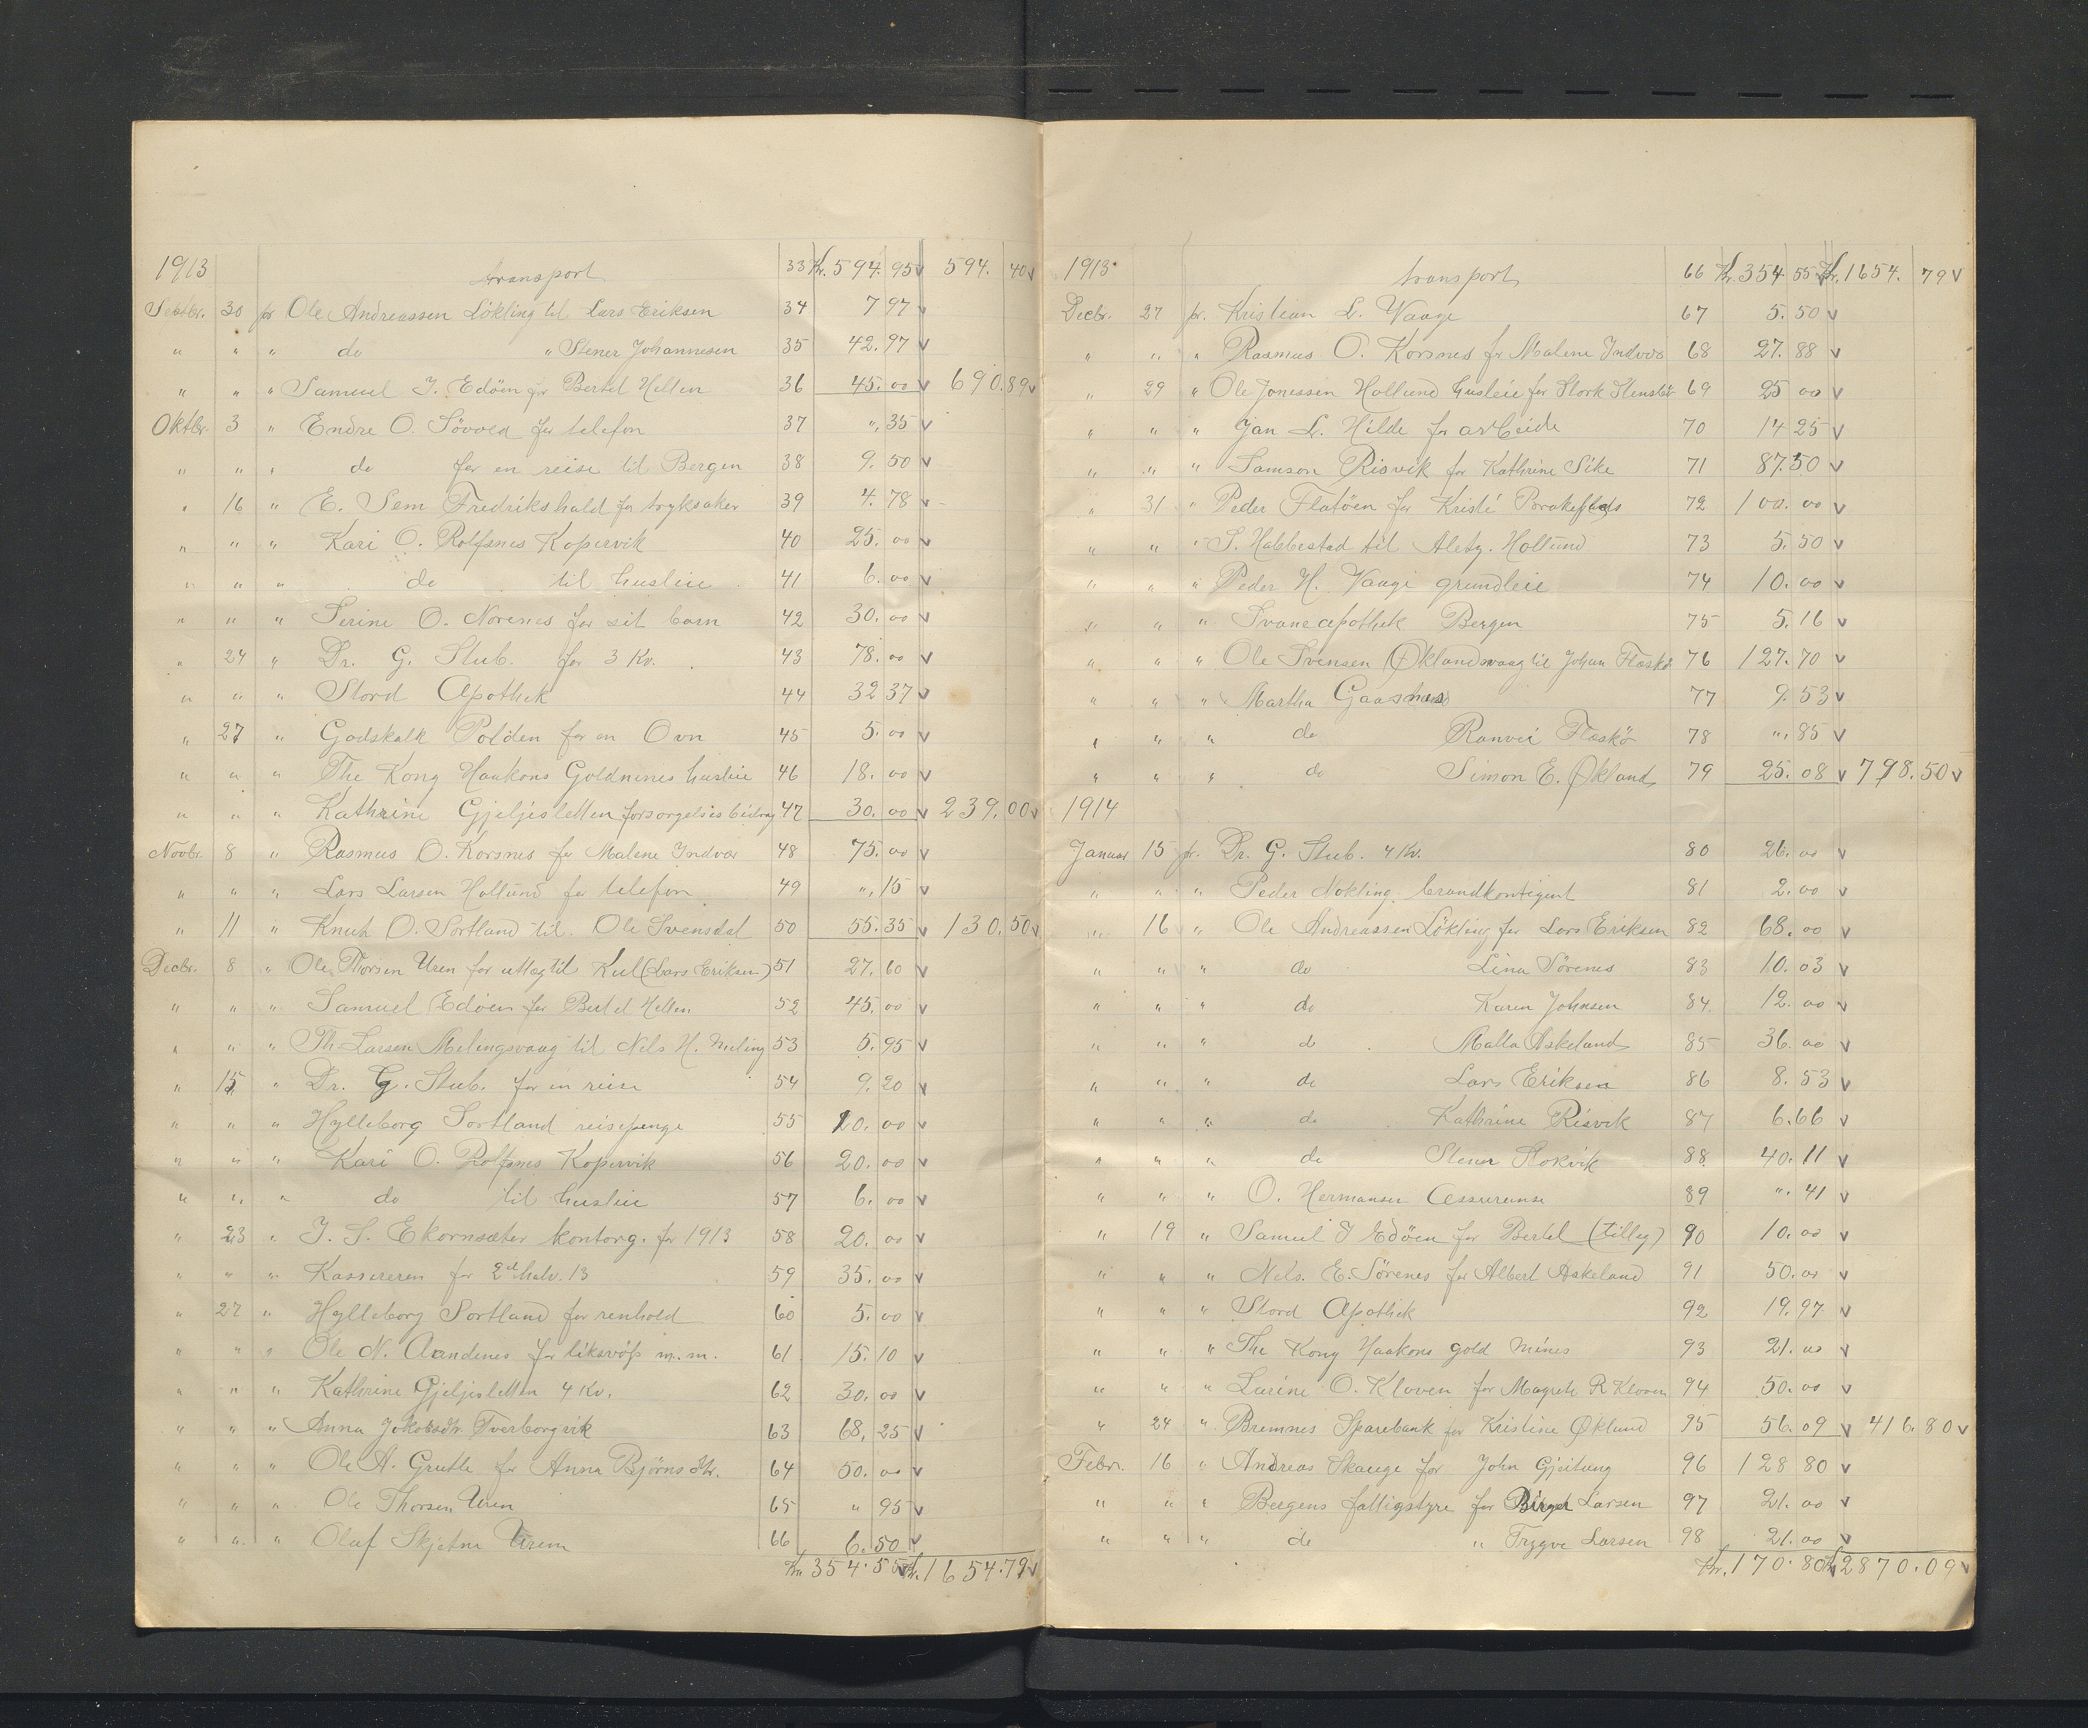 1913 transport 33 Kr. 594. 95 v 594. 40 v
Septbr. 30 pr Ole Andreassen Løkling til Lars Eriksen 34 7 97 v
" " " do " Stener Johannesen 35 42. 97 v
" " " Samuel J. Edøen for Bertel Hellen 36 45. 00 v 690. 89 v
Oktbr. 3 " Endre O. Søvold for telefon 37 ". 35 v
" " " do for en reise til Bergen 38 9. 50 v
" 16 " E. Sem Fredrikshald for tryksaker 39 4. 78 v
" " " Kari O. Rolfsnes Kopervik 40 25. 00 v
" " " do til husleie 41 6. 00 v
" " " Serine O. Norenes for sit barn 42 30. 00 v
" 24 " Dr. G. Stub. for 3 Kv. 43 78. 00 v
" " " Stord Apothek 44 32 37 v
" 27 " Godskalk Polden for en Ovn 45 5. 00 v
" " " The Kong Haakons Goldmines husleie 46 18. 00 v
" " " Kathrine Gjeljesletten forsorgelsesbidrag 47 30. 00 v 239. 00 v
Novbr. 8 " Rasmus O. Korsnes for Malene Indvær 48 75. 00 v
" " " Lars Larsen Hollund for telefon 49 ". 15 v
" 11 " Knut O. Sortland til. Ole Svensdal 50 55. 35 v 130. 50 v
Decbr. 8 " Ole Thorsen Uren for utlæg til Kul (Lars Eriksen) 51 27. 60 v
" " " Samuel Edøen for Bertel Hellen 52 45. 00 v
" " " Th. Larsen Melingsvaag til Nels H. Meling 53 5. 95 v
" 15 " Dr. G. Stub. for en reise 54 9. 20 v
" " " Hylleborg Sortland reisepenge 55 10. 00 v
" " " Kari O. Rolfsnes Kopervik 56 20. 00 v
" " " do til husleie 57 6. 00 v
" 23 " J. S. Ekornsæter kontorg. for 1913 58 20. 00 v
" " " Kassereren for 2d halv. 13 59 35. 00 v
" 27 " Hylleborg Sortland for renhold 60 5. 00 v
" " " Ole N. Aandenes for liksvøp m.m. 61 15. 10 v
" " " Kathrine Gjeljesletten 4 Kv. 62 30. 00 v
" " " Anna Jokobsdtr. Tverborgvik 63 68. 25 v
" " " Ole A. Grutle for Anna Bjørns dtr. 64 50. 00 v
" " " Ole Thorsen Uren 65 " 95 v
" " " Olaf Skjetne Urem 66 6. 50 v
Kr. 354. 55 v Kr. 1654. 79 v
1913 transport 66 Kr. 354 55 v Kr. 1654. 79 v
Decbr. 27 pr. Kristian L. Vaage 67 5. 50 v
" " " Rasmus O. Korsnes for Malene Indvær 68 27. 88 v
" 29 " Ole Jonessen Hollund husleie for Stork 69 25 00 v
" " " Jan L. Hilde for arbeide 70 14 25 v
" " " Samson Risvik for Kathrine Sike 71 87. 50 v
" 31 " Peder Flatøen for Kristi 72 100. 00 v
" " " S. Habbestad til Aletg. Hollund 73 5. 50 v
" " " Peder H. Vaage grundleie 74 10. 00 v
" " " Svaneapothek Bergen 75 5. 16 v
" " " Ole Svensen Øklandsvaag til Johan Floskø 76 127. 70 v
" " " Martha 77 9. 53 v
" " " do Ranvei Floskø 78 ". 85 v
" " " do Simon E. Økland 79 25. 08 v 798. 50 v
1914
Januar 15 pr. Dr. G. Stub. 4 Kv. 80 26. 00 v
" " " Peder Nokling. brandkontigent 81 2. 00 v
" 16 " Ole Andreassen Løkling for Lars Eriksen 82 68. 00 v
" " " do Lina Sørenes 83 10. 03 v
" " " do Karen Johnsen 84. 12. 00 v
" " " do Malla Askeland 85 36. 00 v
" " " do Lars Eriksen 86 8. 53 v
" " " do Kathrine Risvik 87 6. 66 v
" " " do Stener Stokvik 88. 40. 11 v
" " " O. Hermansen Assuranse 89 ". 41 v
" 19 " Samuel J Edøen for Bertel (tilleg) 90 10. 00 v
" " " Nels. E. Sørenes for Albert Askeland 91 50. 00 v
" " " Stord Apothek 92 19. 97 v
" " " The Kong Haakons gold mines 93 21. 00 v
" " " Larine O. Kloven for Magrete R Kloven 94 50. 00 v
" 24 " Bremnes Sparebank for Kristine Økland 95 56. 09 v 416. 80 v
Febr. 16 " Andreas Skauge for John Gjeitung 96 128 80 v
" " " Bergens fattigstyre for Birger Larsen 97 21. 00 v
" " " do " Trygve Larsen 98 21. 00 v
Kr. 170. 80 v Kr. 2870. 09 v